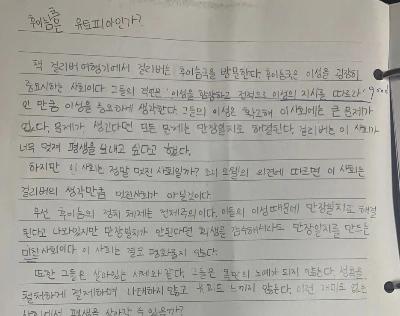 후이늠은 유토피아인가?
책 걸리버 여행기에서 걸리버는 후이늠국을 방문한다. 후이늠국은 이성을 굉장히
중요시하는 사회이다. 그들의 격언은 '이성을 함양하고 전적으로 이성의 지시를 따르라'
인 만큼 이성을 중요하게 생각한다. 그들의 이성은 확고해 이 사회에는 큰 문제가
없다. 문제가 생긴다면 모든 문제는 만장일치로 해결된다. 걸리버는 이 사회가
너무 멋져 평생을 보내고 싶다고 했다.
하지만 이 사회는 정말 멋진 사회일까? 조지 오웰의 의견에 따르면 이 사회는
걸리버의 생각만큼 멋진사회가 아닐것이다.
우선 후이늠의 정치 체제는 전체주의이다. 이들의 이성때문에 만장일치로 해결
된다고 나와있지만 만장일치가 안된다면 희생을 감수해서라도 만장일치를 만드는
미친사회이다. 이 사회는 결코 평화롭지 않다.
또한 그들은 살아있는 시체와 같다. 그들은 욕망의 노예가 되지 않는다. 성욕을
철저하게 절제하며 나태하지 않고 느끼지 않는다. 이런 재미도 없는
평생을 살아갈 수 있을까?